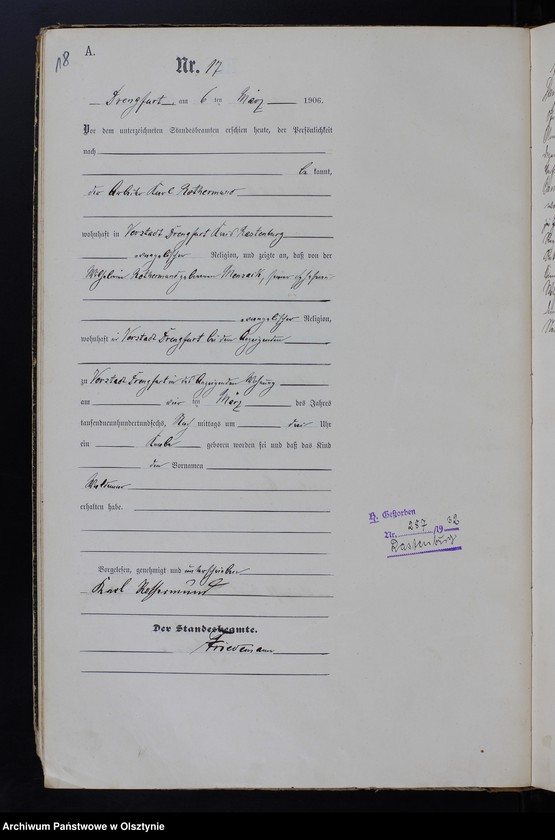 18
A.
Nr. 17
Drengfurt am 6 ten März 1906.
Vor dem unterzeichneten Standesbeamten erschien heute, der Persönlichkeit
nach
be kannt,
der Arbeiter Karl
wohnhaft in Vorstadt Drengfurt Kreis Rastenburg
evangelischer Religion, und zeigte an, daß von der
geborenen seiner Ehefrau
evangelischer Religion,
wohnhaft in Vorstadt Drengfurt bei dem Anzeigenden
zu Vorstadt Drengfurt in des Anzeigenden Wohnung
am vier ten März des Jahres
tausendneunhundertundsechs, Nach mittags um drei Uhr
ein Knabe geboren worden sei und daß das Kind
den Vornamen
erhalten habe.
H. Gestorben
Nr. 257 /19 32
Rastenburg
Vorgelesen, genehmigt und unterschrieben
Karl
Der Standesbeamte.
Friedemann
Archiwum Państwowe w Olsztynie